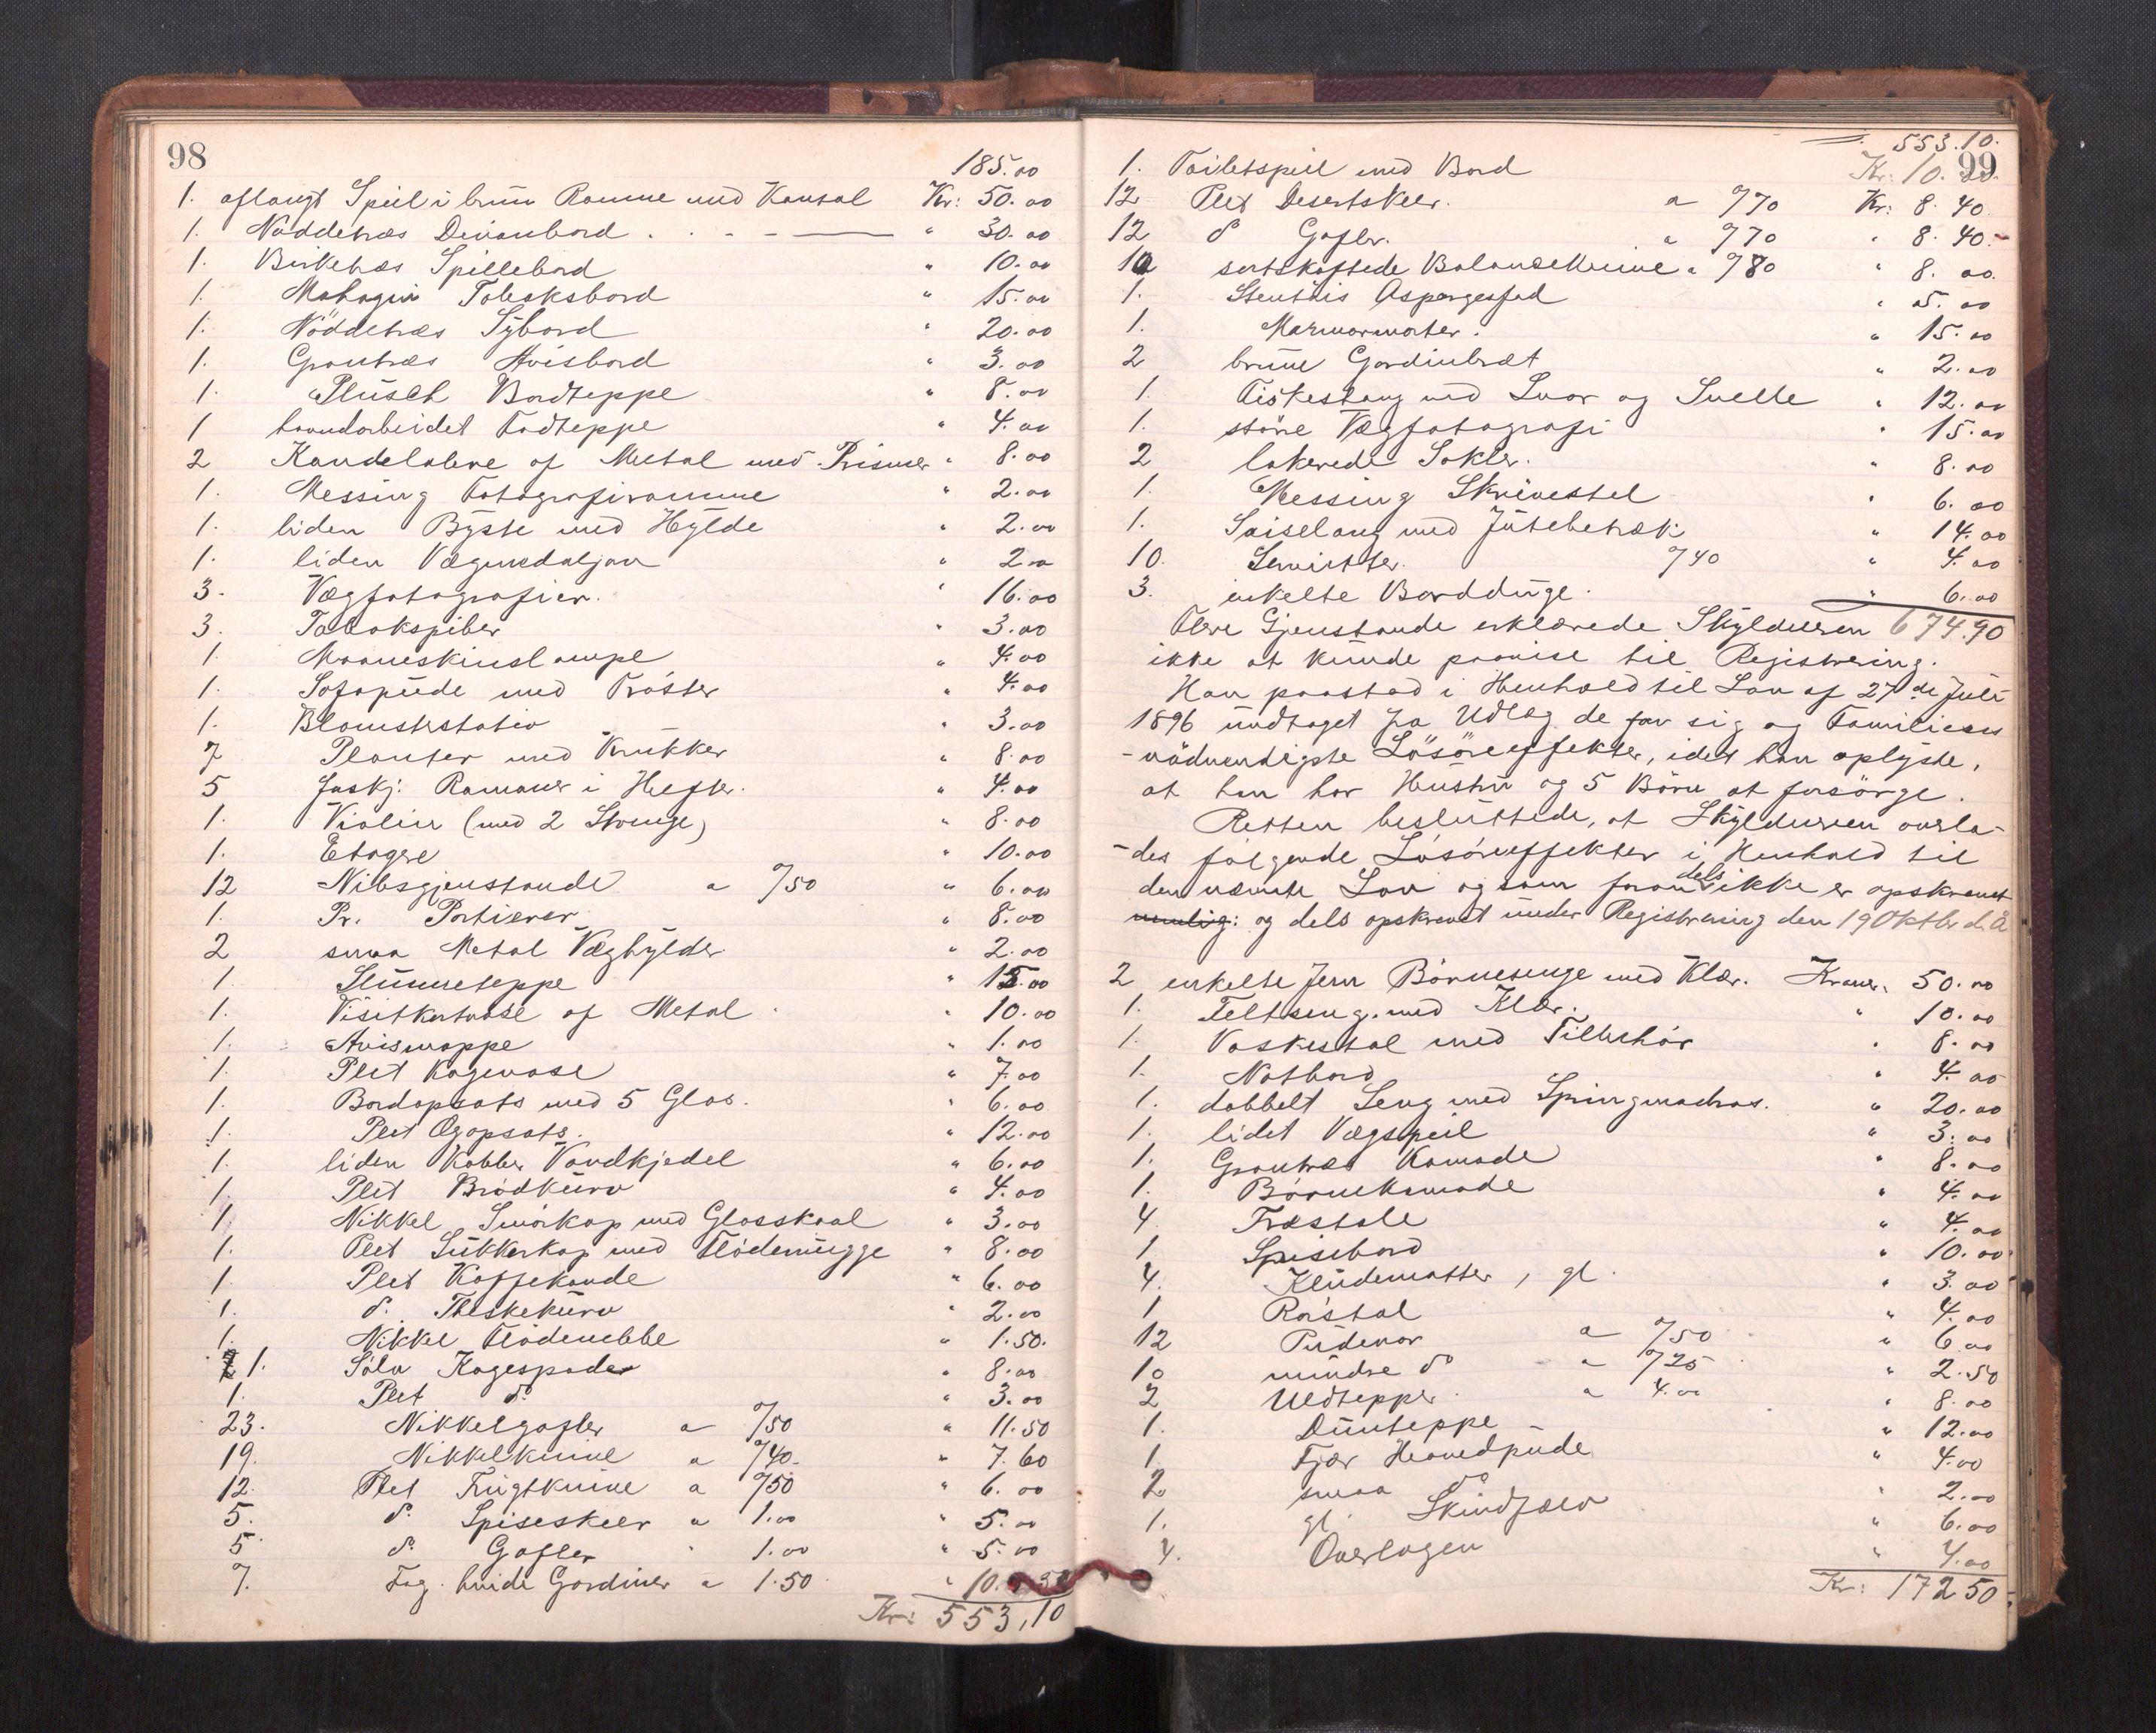 98
185.00
1. aflangt Speil i brun Ramme med Konsol Kr: 50.00
1. Nöddetræs Divanbord . . - - — " 30.00
1. Birketræs Spillebord " 10.00
1. Mahogni Tobaksbord " 15.00
1. Nöddetræs Sybord " 20.00
1. Grantræs Avisbord " 3.00
1. Plüsch Bordteppe " 8.00
1 haandarbeidet Fodteppe " 4.00
2 Kandelabere af Metal med Prismer " 8.00
1. Messing Fotografiramme " 2.00
1. liden Byste med Hylde " 2.00
1. liden Vægmedaljon " 2.00
3. Vægfotografier. " 16.00
3. Tobakspiber " 3.00
1. Maaneskinslampe " 4.00
1. Sofapude med Frøster " 4.00
1. Blomsterstativ " 3.00
7 Planter med Krukker " 8.00
5 forskj: Romaner i Hefter. " 4.00
1. Violin (med 2 Strenge) " 8.00
1. Etagere " 10.00
12 Nibsgjenstande a %50 " 6.00
1. Pr. Portierer " 8.00
2 smaa Metal Væghylder " 2.00
1. Slummeteppe " 15.00
1. Visitkortvase af Metal " 10.00
1. Avismappe " 1.00
1. Plet Kagevase " 7.00
1. Bordopsats med 5 Glas. " 6.00
1. Plet Ægopsats. " 12.00
1. liden Kobber Vandkjedel " 6.00
1. Plet Brödkurv " 4.00
1. Nikkel Smörkop med Glasskaal " 3.00
1. Plet Sukkerkop med Flödemugge " 8.00
1. Plet Kaffekande " 6.00
1. do. Theskekurv " 2.00
1. Nikkel Flödenebbe " 1.50.
1. Sölv Kagespade " 8.00
1. Plet do. " 3.00
23. Nikkelgafler a %50 " 11.50
19. Nikkelknive a %40 " 7.60
12. Plet Frugtknive a %50 " 6.00
5. do. Spiseskeer a 1.00 " 5.00
5. do. Gafler " 1.00 " 5.00
7. Fag. hvide Gardiner a 1.50 " 10.50
Kr: 553,10
553.10.
99
1. Toiletspeil med Bord Kr: 10.00.
12 Plet Desertskeer. a %70 Kr: 8.40.
12 do Gafler. " %70 " 8.40.
10 sortskaftede Balanseknive " %80 " 8.00.
1. Stentöis Aspargesfad " 5.00
1. Marmormorter. " 15.00
2 brune Gardinbræt " 2.00
1. Fiskestang med Snor og Snelle " 12.00
1. större Vægfotografi " 15.00
2 lakerede Sokler. " 8.00
1. Messing Skrivestel " 6.00
1. Saiselong med Jutebetræk " 14.00
10. Servietter. %40 " 4.00
3. enkelte Bordduge. " 6.00
Flere Gjenstande erklærede Skyldneren 674.90
ikke at kunde paavise til Registrering.
Han paastod i Henhold til Lov af 27de Juli
1896 undtaget fra Udlæg de for sig og Familien
-nödvendigste Lösöreeffekter, idet han oplyste,
at han har Hustru og 5 Börn at forsörge.
Retten besluttede, at Skyldneren overla-
-des fölgende Lösöreeffekter i Henhold til
den nævnte Lov og som foran dels ikke er opskrevet
nemlig: og dels opskrevet under Registrering den 19 Oktbr d. A
2 enkelte Jern Börnesenge med Klær. Kroner. 50.00
1. Feltseng med Klær. " 10.00
1. Vaskestol med Tilbehör " 8.00
1. Natbord " 4.00
1. dobbelt Seng med Springmadras. " 20.00
1. lidet Vægspeil " 3.00
1. Grantræs Komode " 8.00
1. Börnekomode " 4.00
4. Træstole " 4.00
1. Spisebord " 10.00
4. Kludematter, gl. " 3.00
1 Rorstol " 4.00
12 Pudevar a %50 " 6.00
10 mindre do a %25 " 2.50
2 Uldtepper. a 4.00 " 8.00
1. Dunteppe " 12.00
1. Fjær Hovedpude " 4.00
2 smaa do " 2.00
1. gl. Skindfæld " 6.00
4. Overlagen " 4.00
Kr: 172.50